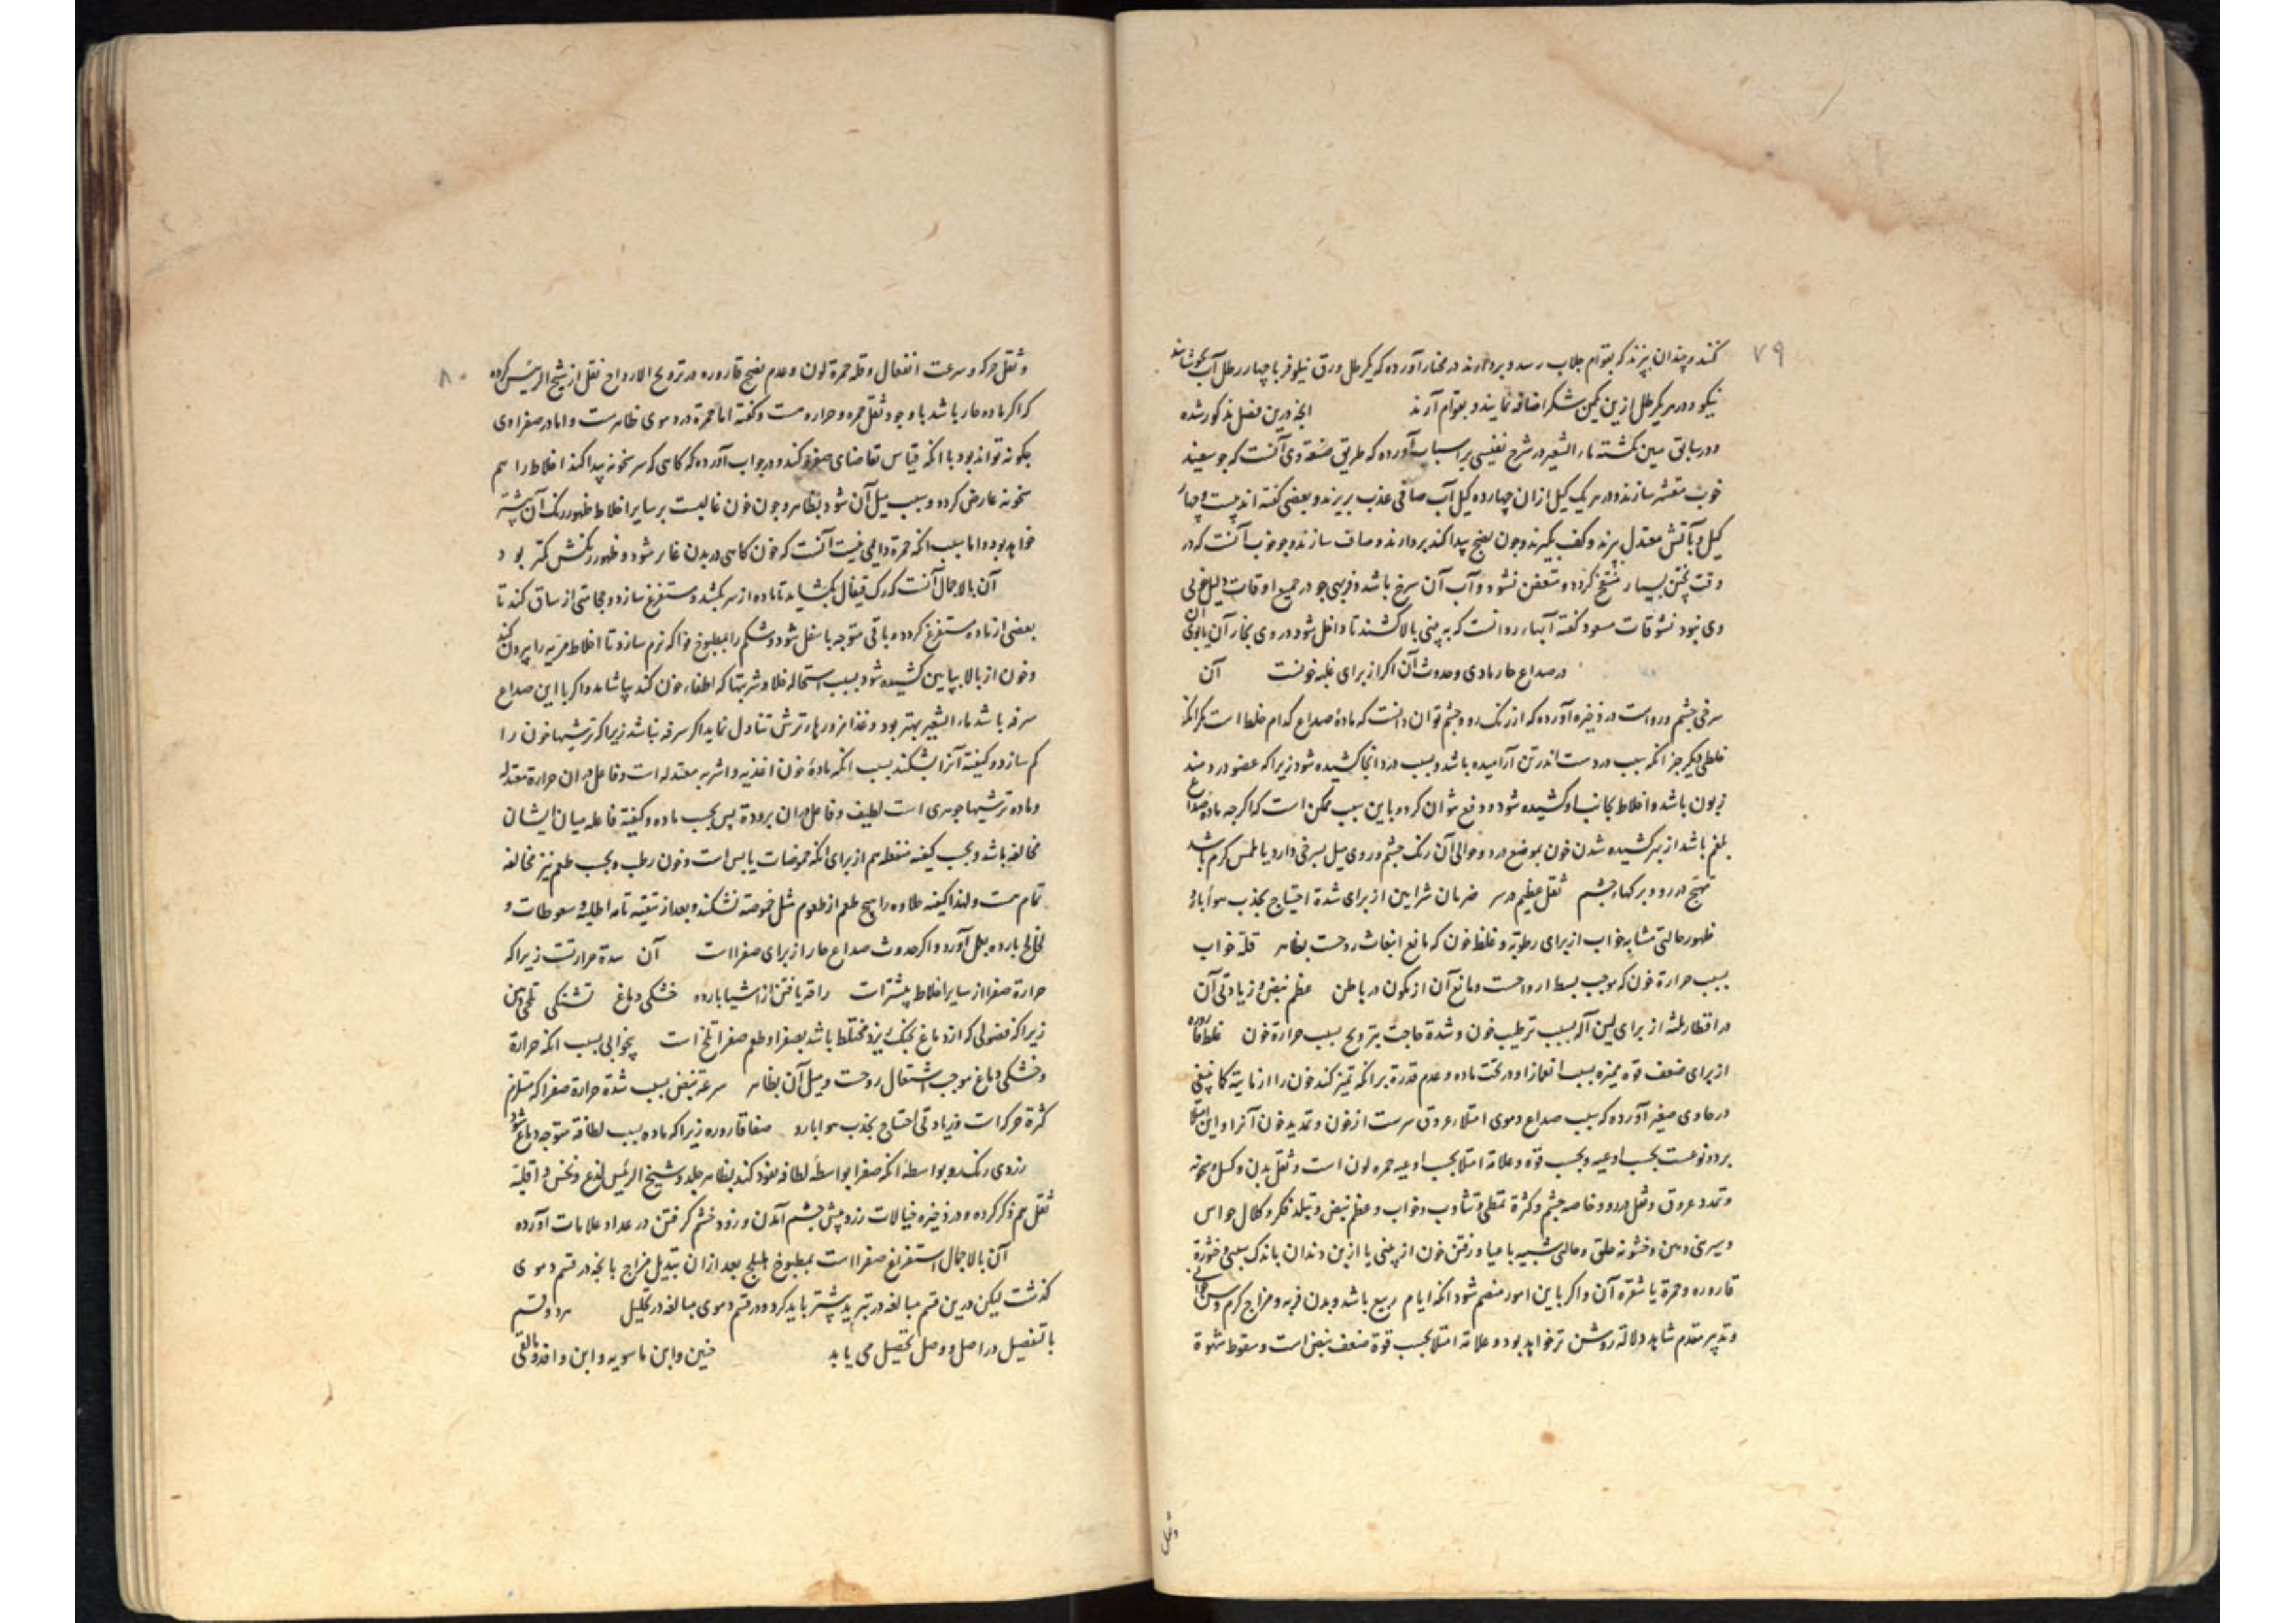 ۷۹
کنند و چندان بپزند که بقوام جلاب رسد و بردارند در مختار آورده که یکرطل ورق نیلوفر با چهار رطل آب بجوشانند
نیکو و در هر یکرطل ازین یکمن شکر اضافه نمایند و بقوام آرند انچه درین فصل مذکور شده
و در سابق مبین نکشته ماء الشعیر در شرح نفیسی بر اسباب آورده که طریق صنعة وی آنست که جو سفید
خوب مقشر سازند و در هر یک کیل ازان چهارده کیل آب صافی عذب بریزند و بعضی کفته اند بیست و چهار
کیل و بآتش معتدل بپزند و کف بکیرند و چون نضج پیدا کند بردارند و صاف سازند و جو خوب آنست که در
وقت پختن بسیار منتفخ کردد و متعفن نشود و آب آن سرخ باشد و فربهی جو در جمیع اوقات دلیل خوبی
وی نبود نشوقات مسعود کفته آبهاء روانست که به بینی بالا کشند تا داخل شود در وی بخار آن یا بوی آن
در صداع حار مادی و حدوث آن اکر از برای غلبه خونست آن
سرخی چشم و رو است در ذخیره آورده که از رنک رو و چشم توان دانست که مادهٔ صداع کدام خلط است مکر انکه
خلطی دیکر جز آنکه سبب دردست اندر تن آرامیده باشد و بسبب درد آنجا کشیده شود زیرا که عضو دردمند
زبون باشد و اخلاط بجانب او کشیده شود و دفع نتوان کرد و باین سبب ممکن است که اکرچه مادهٔ صداع
بلغم باشد از بهر کشیده شدن خون بموضع درد و حوالی آن رنک چشم و روی میل بسرخی دارد یا ملمس کرم باشد
تهبج در رو و بر کهاء چشم ثقل عظیم در سر ضربان شرایین از برای شدة احتیاج بجذب هواء بارد
ظهور حالتی مشابه خواب از برای رطوبة و غلظ خون که مانع انبعاث روحست بظاهر قلة خواب
بسبب حرارة خون که موجب بسط ارواحست و مانع آن از سکون در باطن عظم نبض و زیادتی آن
در اقطار ثلثه از برای لین آله بسبب ترطیب خون و شدة حاجت بترویح بسبب حرارة خون غلظ قاروره
از برای ضعف قوة ممیزه بسبب انغماز او در تحت ماده و عدم قدرة بر انکه تمیز کند خون را از مائیة کما ینبغی
در حاوی صغیر آورده که سبب صداع دموی امتلاء عروق سرست از خون و تمدید خون آنرا و این امتلا
بر دو نوعست بحسب اوعیه و بحسب قوة و علامة امتلا بحسب اوعیه حمره لون است و ثقل بدن و کسل و سخونه
و تمدد عروق و ثقل در رو و خاصه چشم و کثرة تمطی و تثاوب و خواب و عظم نبض و تبلد فکر و کلال حواس
و سرخی دهن و خشونه حلق و حالتی شبیه باعیا و رفتن خون از بینی یا از بن دندان باندک سببی و خثورة
قاروره و حمرة یا شقرة آن و اکر باین امور منضم شود انکه ایام ربیع باشد و بدن فربه و مزاج کرم و سن جوانی
و تدبیر مقدم شاید دلالة روشن تر خواهد بود و علامة امتلا بحسب قوة ضعف نبض است و سقوط شهوة
وثقل
۸۰
و ثقل حرکه و سرعت انفعال و قلة حمرة لون و عدم نضج قاروره در ترویح الارواح نقل از شیخ الرئیس کرده
که اکر ماده حار باشد با وجود ثقل حمره و حراره هست و کفته اما حمرة در دموی ظاهرست و اما در صفراوی
چکونه تواند بود با انکه قیاس تقاضای صفرة کند و در جواب آورده که کاهی که سر سخونه پیدا کند اخلاط را هم
سخونه عارض کردد و سبب میل آن شود بظاهر و چون خون غالبست بر سایر اخلاط ظهور رنک آن بیشتر
خواهد بود و اما سبب انکه حمرة دایمی نیست آنست که خون کاهی در بدن غایر شود و ظهور رنکش کمتر بود و
آن بالاجمال آنست که رک قیفال بکشایند تا ماده از سر بکشد و مستفرغ سازد و حجامتی از ساق کند تا
بعضی از ماده مستفرغ کردد و باقی متوجه باسفل شود و شکم را بمطبوخ فواکه نرم سازد تا اخلاط مریه را بیرون کند
و خون از بالا بپایین کشیده شود بسبب استحاله خلا و شربتها که اطفاء خون کند بیاشامد و اکر با این صداع
سرفه باشد ماء الشعیر بهتر بود و غذا مزورهاء ترش تناول نماید اکر سرفه نباشد زیرا که ترشیها خون را
کم سازد و کیفیة آنرا بشکند بسبب انکه مادهٔ خون اغذیه و اشربه معتدله است و فاعل دران حرارة معتدله
و ماده ترشیها جوهری است لطیف و فاعل دران برودة پس بحسب ماده و کیفیة فاعله میان ایشان
مخالفه باشد و بحسب کیفیه منفعله هم از برای انکه حموضات یابس است و خون رطب و بحسب طعم نیز مخالفه
تمام هست و لهذا کیفیه حلاوه را هیچ طعم از طعوم مثل حموضة نشکند و بعد از تنقیه تامه اطلیه و سعوطات و
لخالخ بارده بعمل آورد و اکر حدوث صداع حار از برای صفرا است آن شدة حرارتست زیرا که
حرارة صفرا از سایر اخلاط بیشترست راحة یافتن از اشیا بارده خشکی دماغ تشنکی تلخی دهن
زیرا که فضولی که از دماغ بحنک ریزد مختلط باشد بصفرا و طعم صفرا تلخ است بیخوابی بسبب انکه حرارة
و خشکی دماغ موجب اشتعال روحست و میل آن بظاهر سرعة نبض بسبب شدة حرارة صفرا که مستلزم
کثرة حرکرات و زیادتی احتیاج بجذب هواء بارد صفاء قاروره زیرا که ماده بسبب لطافة متوجه دماغ شود
زردی رنک رو بواسطه انکه صفرا بواسطهٔ لطافه نفوذ کند بظاهر جلد و شیخ الرئیس لذع و نخس و اقلیة
ثقل هم ذکر کرده و در ذخیره خیالات زرد پیش چشم آمدن و زود خشم کرفتن در عداد علامات آورده
آن بالاجمال استفراغ صفرا است بمطبوخ هلیلج بعد ازان تبدیل مزاج بانچه در قسم دموی
کذشت لیکن درین قسم مبالغه در تبرید بیشتر باید کرد و در قسم دموی مبالغه در تحلیل هر دو قسم
با تفصیل در اصل و وصل تحصیل می یابد حنین و ابن ماسویه و ابن وافد و مالقی